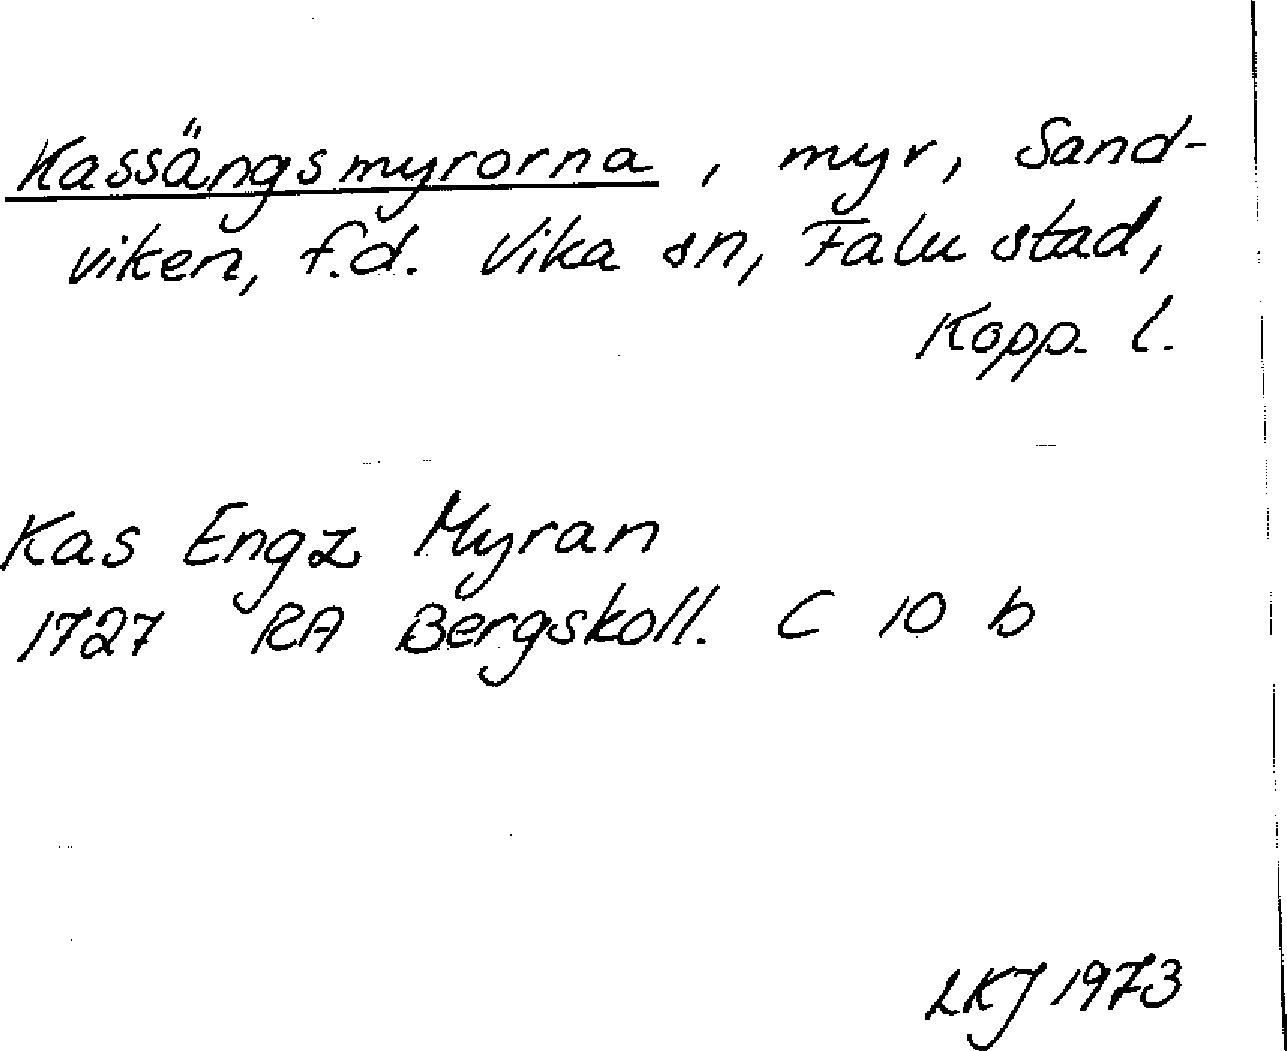 Kassängsmyrorna, myr, Sand-
viken, f.d. Vika sn, Falu stad,
Kopp. l.
Kas Engz Myran
1727 RA Bergskoll. C 10 b
LKJ 1973